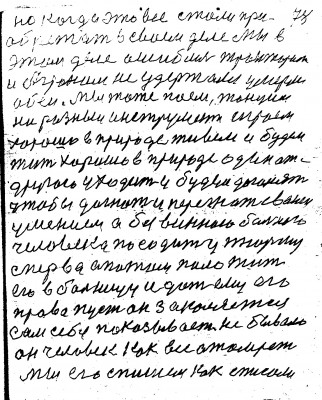 но когда это все стали при- 74
обретать в своем деле мы в
этом деле ошиблись
и не удержали умерли
оба. Мы тоже поем, танцуем
на разный инструмент играем
хорошо в природе живем и будем
жить хорошо в природе один от
другого уходит и будем догонять
чтобы догнать и перегнать своим
умением а без винного больного
человека посодит у тюрму
сперва а потом положит
его в больницу и дот ему его
права пуст он закаляется
сам себя показывает не бывало
он человек как все
мы его спишем как списали